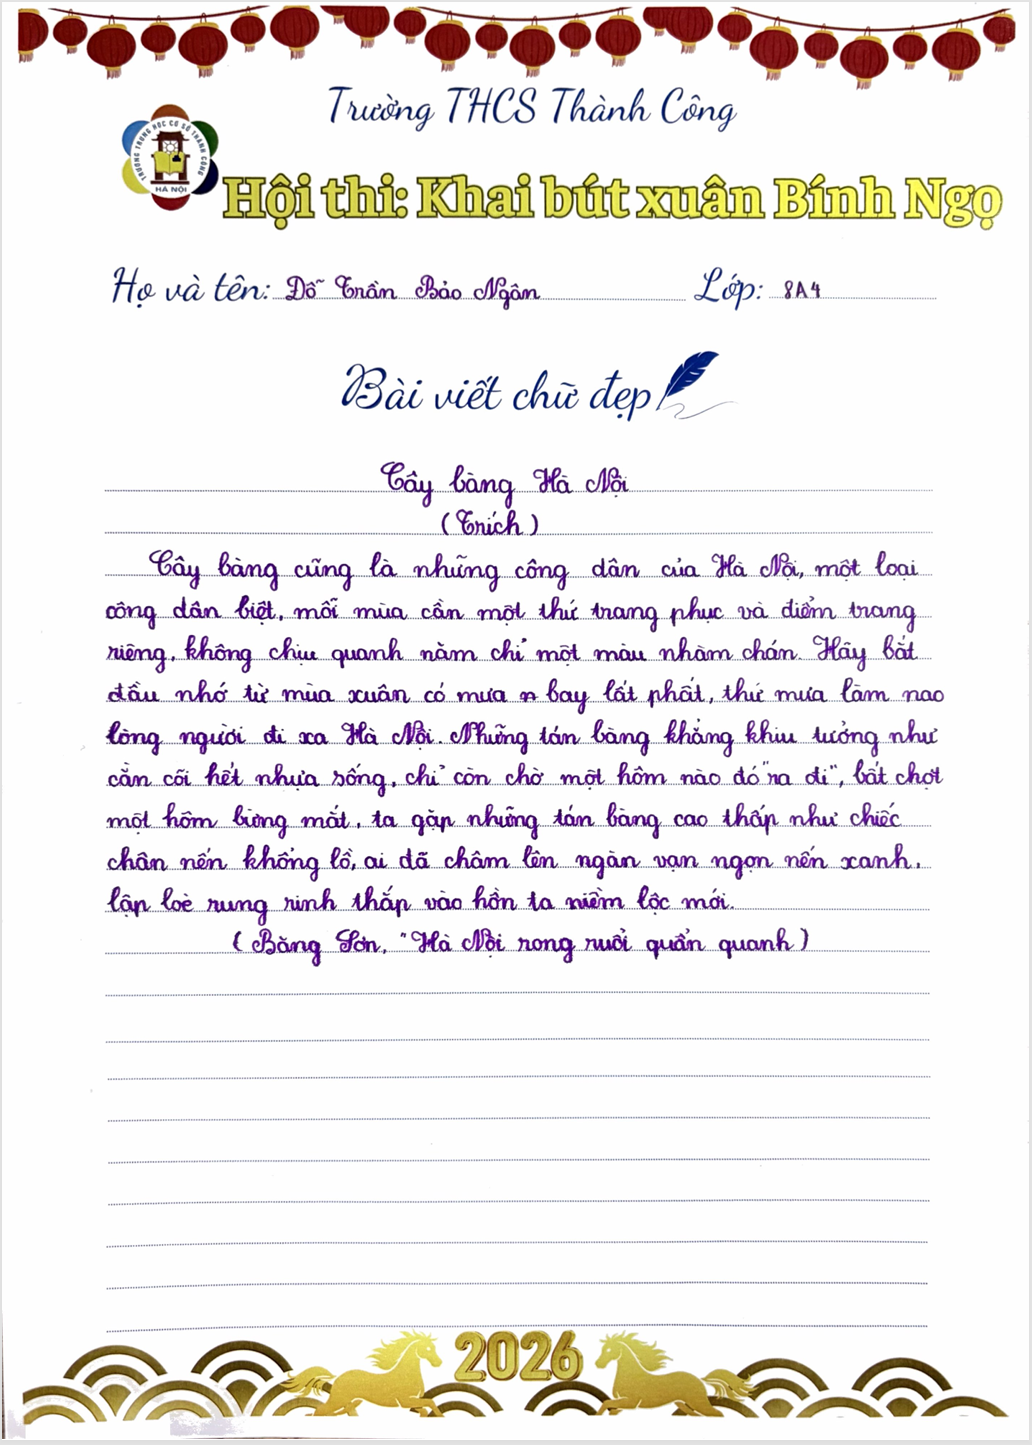 Trường THCS Thành Công
TRƯỜNG TRUNG HỌC CƠ SỞ THÀNH CÔNG
HÀ NỘI
Hội thi: Khai bút xuân Bính Ngọ
Họ và tên: Đỗ Trần Bảo Ngân Lớp: 8A4
Bài viết chữ đẹp
Cây bàng Hà Nội
(Trích)
Cây bàng cũng là những công dân của Hà Nội, một loại
công dân biệt, mỗi mùa cần một thứ trang phục và điểm trang
riêng, không chịu quanh năm chỉ một màu nhàm chán. Hãy bắt
đầu nhớ từ mùa xuân có mưa bay lất phất, thứ mưa làm nao
lòng người đi xa Hà Nội. Những tán bàng khẳng khiu tưởng như
cằn cỗi hết nhựa sống, chỉ còn chờ một hôm nào đó "ra đi", bất chợt
một hôm bừng mắt, ta gặp những tán bàng cao thấp như chiếc
chân nến khổng lồ, ai đã châm lên ngàn vạn ngọn nến xanh,
lập loè rung rinh thắp vào hồn ta niềm lộc mới.
( Băng Sơn, "Hà Nội rong ruổi quẩn quanh )
2026